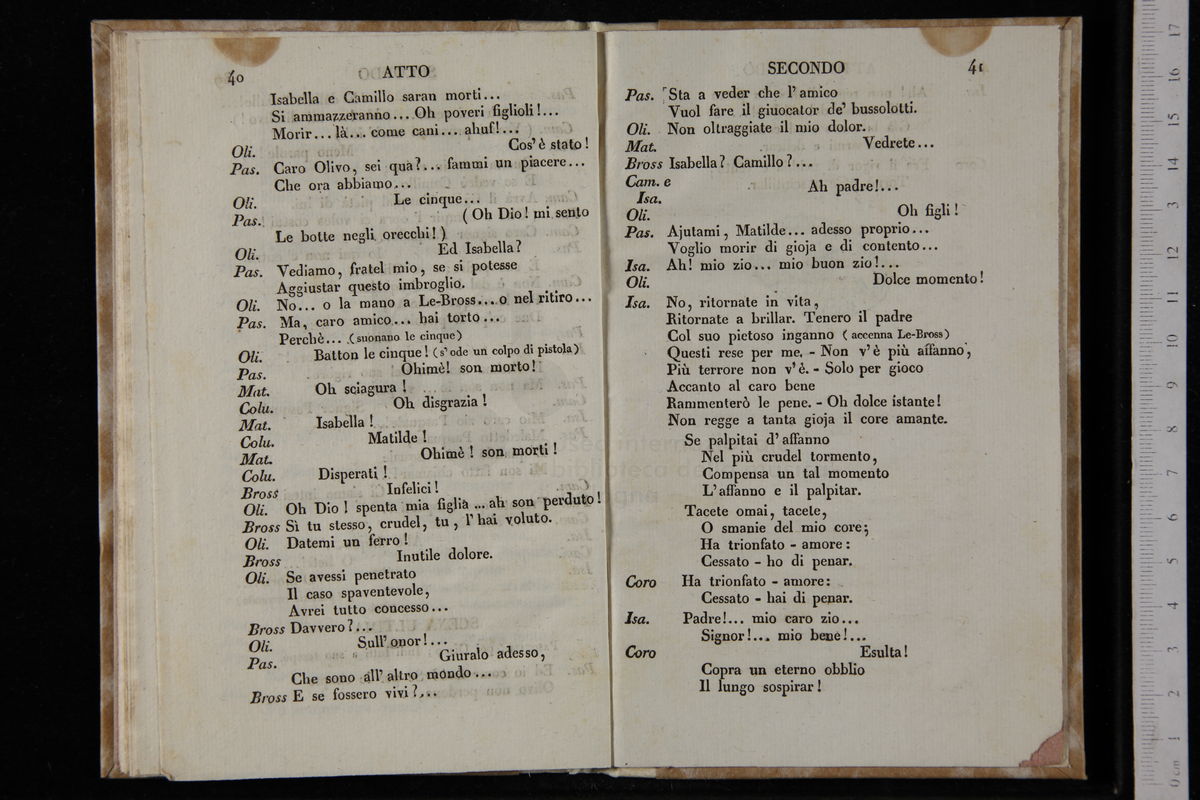 40 ATTO
Isabella e Camillo saran morti...
Si ammazzeranno... Oh poveri figlioli!...
Morir... là... come cani... ahuf!...
Oli. Cos' è stato!
Pas. Caro Olivo, sei quà?... fammi un piacere...
Che ora abbiamo...
Oli. Le cinque...
Pas. ( Oh Dio! mi sento
Le botte negli orecchi! )
Oli. Ed Isabella?
Pas. Vediamo, fratel mio, se si potesse
Aggiustar questo imbroglio.
Oli. No... o la mano a Le-Bross... o nel ritiro...
Pas. Ma, caro amico... hai torto...
Perchè... (suonano le cinque)
Oli. Batton le cinque! (s'ode un colpo di pistola)
Pas. Ohimè! son morto!
Mat. Oh sciagura!
Colu. Oh disgrazia!
Mat. Isabella!
Colu. Matilde!
Mat. Ohimè! son morti!
Colu. Disperati!
Bross Infelici!
Oli. Oh Dio! spenta mia figlia ... ah son perduto!
Bross Sì tu stesso, crudel, tu, l' hai voluto.
Oli. Datemi un ferro!
Bross Inutile dolore.
Oli. Se avessi penetrato
Il caso spaventevole,
Avrei tutto concesso...
Bross Davvero?...
Oli. Sull' onor!...
Pas. Giuralo adesso,
Che sono all' altro mondo...
Bross E se fossero vivi?...
SECONDO 41
Pas. Sta a veder che l' amico
Vuol fare il giuocator de' bussolotti.
Oli. Non oltraggiate il mio dolor.
Mat. Vedrete...
Bross Isabella? Camillo?...
Cam. e
Isa. Ah padre!...
Oli. Oh figli!
Pas. Ajutami, Matilde... adesso proprio...
Voglio morir di gioja e di contento...
Isa. Ah! mio zio... mio buon zio!...
Oli. Dolce momento!
Isa. No, ritornate in vita,
Ritornate a brillar. Tenero il padre
Col suo pietoso inganno ( accenna Le-Bross)
Questi rese per me. - Non v' è più affanno,
Più terrore non v' è. - Solo per gioco
Accanto al caro bene
Rammenterò le pene. - Oh dolce istante!
Non regge a tanta gioja il core amante.
Se palpitai d' affanno
Nel più crudel tormento,
Compensa un tal momento
L' affanno e il palpitar.
Tacete omai, tacete,
O smanie del mio core;
Ha trionfato - amore:
Cessato - ho di penar.
Coro Ha trionfato - amore:
Cessato - hai di penar.
Isa. Padre!... mio caro zio...
Signor!... mio bene!...
Coro Esulta!
Copra un eterno obblio
Il lungo sospirar!